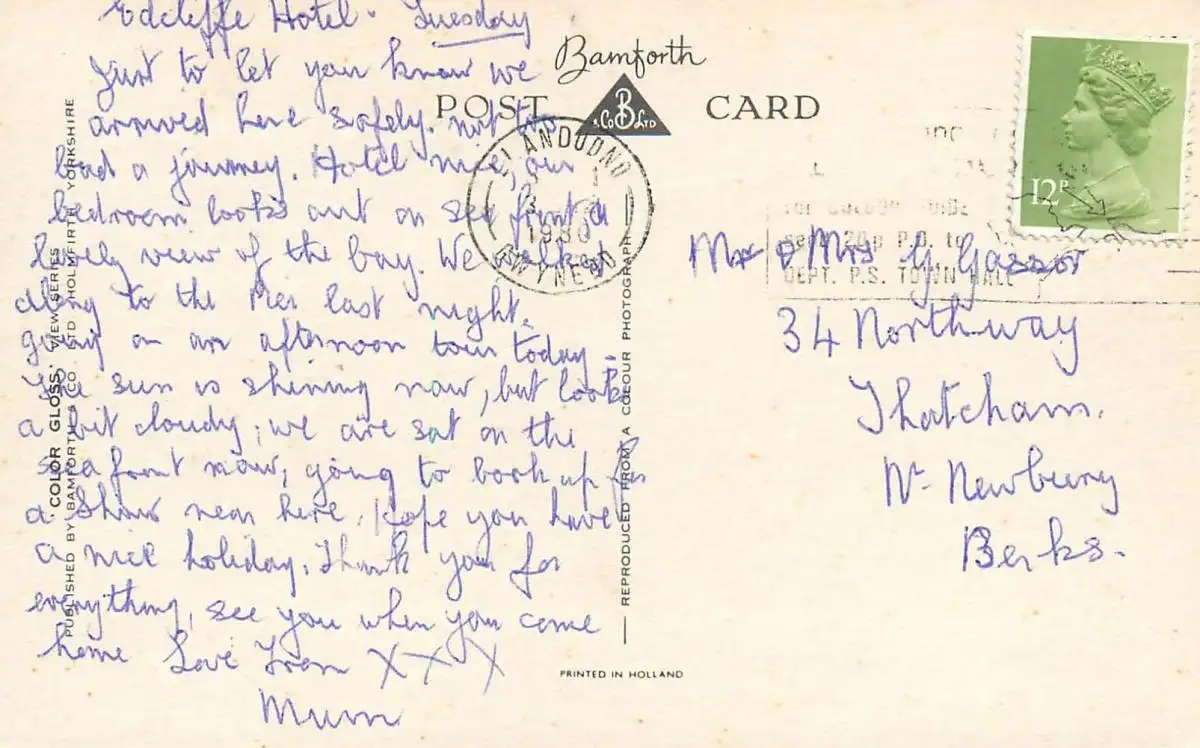 Edcliffe Hotel. Tuesday
Just to let you know we
arrived here safely. not too
bad a journey. Hotel nice, our
bedroom looks out on sea front a
lovely view of the bay. We walked
along to the Pier last night.
going on an afternoon tour today.
The sun is shining now, but looks
a bit cloudy, we are sat on the
seafront now, going to book up for
a show near here. Hope you have
a nice holiday. Thank you for
everything, see you when you come
home Love From X X X
Mum
Bamforth
POST CARD
B
& Co LTD
LLANDUDNO
1980
GWYNEDD
12P
GUIDE
send 20p P.O. to
DEPT. P.S. TOWN HALL
Mr & Mrs G. Gazzor
34 Northway
Thatcham.
Nr Newbury
Berks.
COLOR GLOSS VIEW SERIES
PUBLISHED BY BAMFORTH & CO. LTD. HOLMFIRTH YORKSHIRE
REPRODUCED FROM A COLOUR PHOTOGRAPH
PRINTED IN HOLLAND